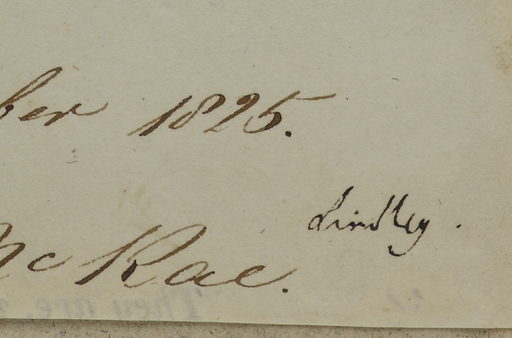 ber 1825.
Lindley.
Mc Rae.